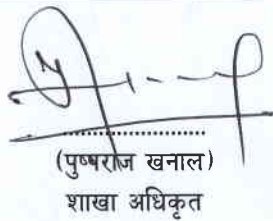 (पुष्पराज खनाल)
शाखा अधिकृत